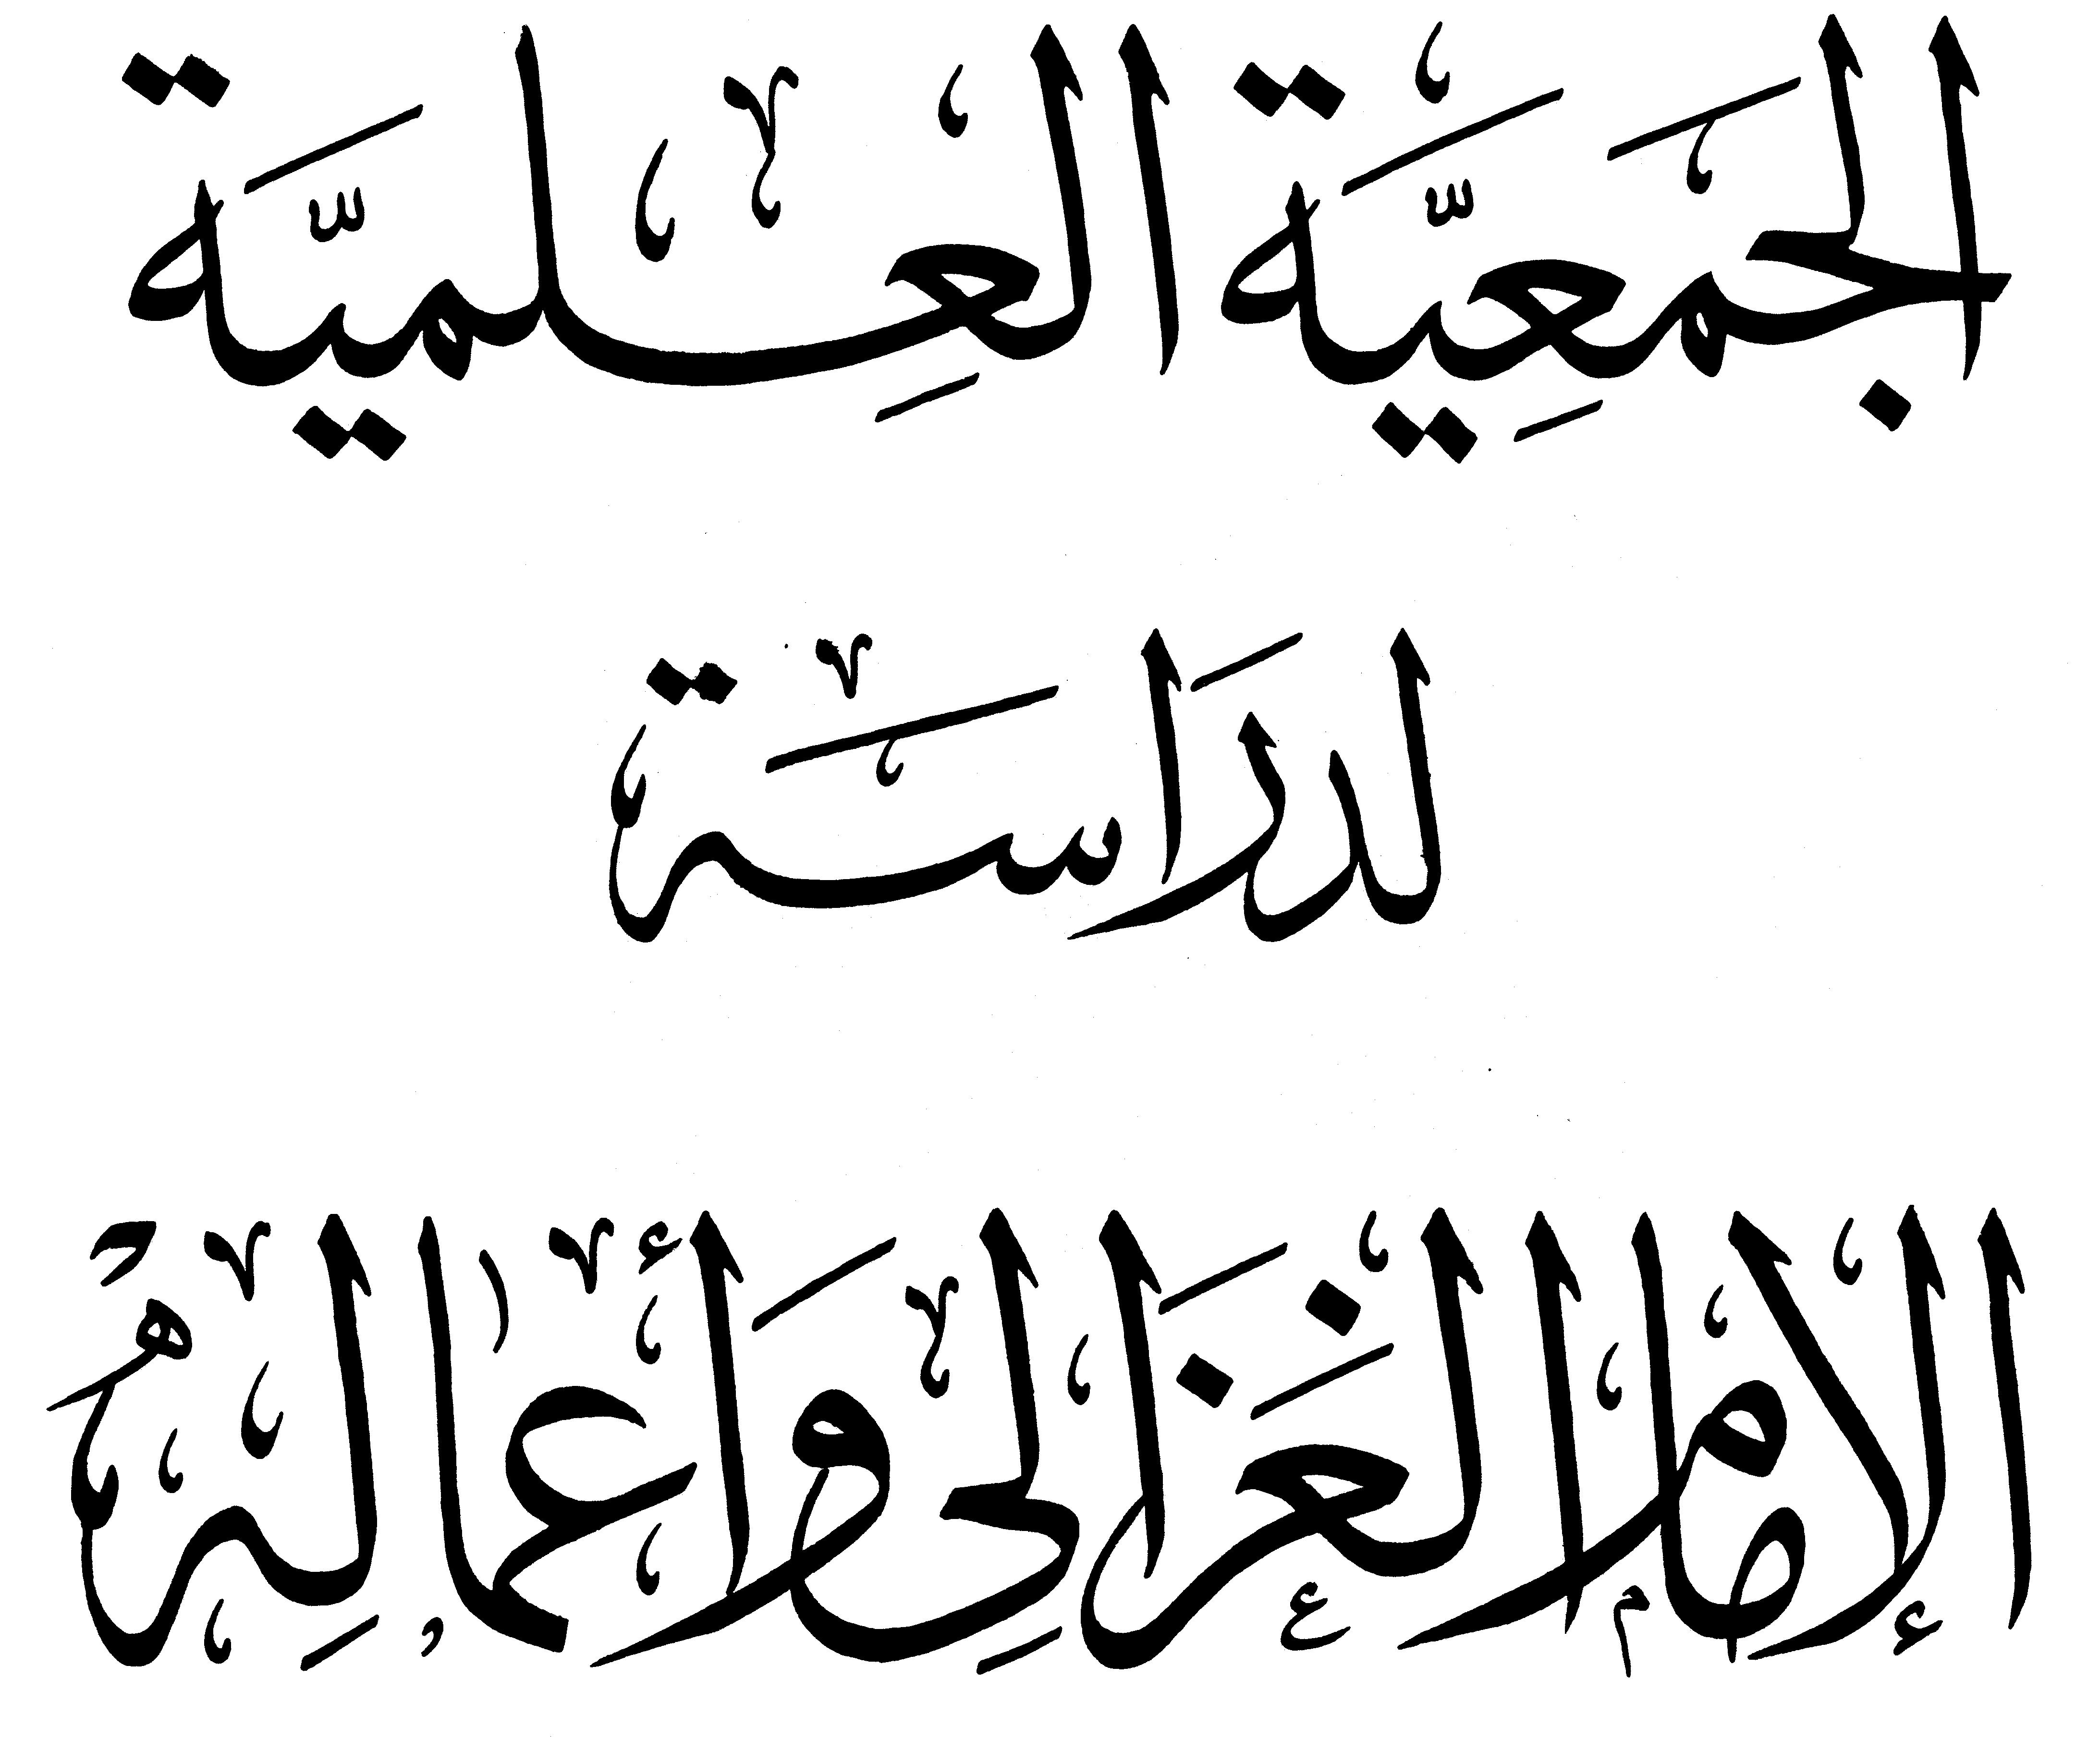 الجَمعِيَّة العِلميَّة
لدرَاسَة
الإمام الغَزَالي وَأعمَالِه